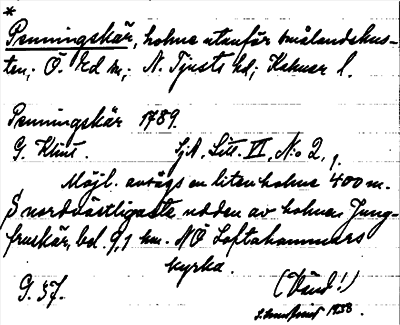 *
Penningskär, holme utanför Smålandskus-
ten; Ö. Ed sn; N. Tjusts hd; Kalmar l.
Penningskär 1789.
G. Klint. SjA, Litt. VI, No 2,
Möjl. avsågs en liten holme 400 m.
S nordvästligaste udden av holmen Jung-
fruskär, bel. 9,1 km. NÖ Loftahammars
kyrka.
G. 57. (Vänd!)
1938.